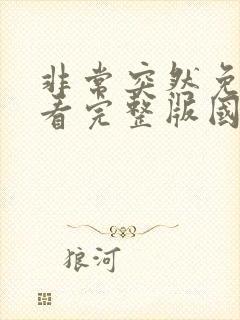 非常突然免
看完整版國
狼河